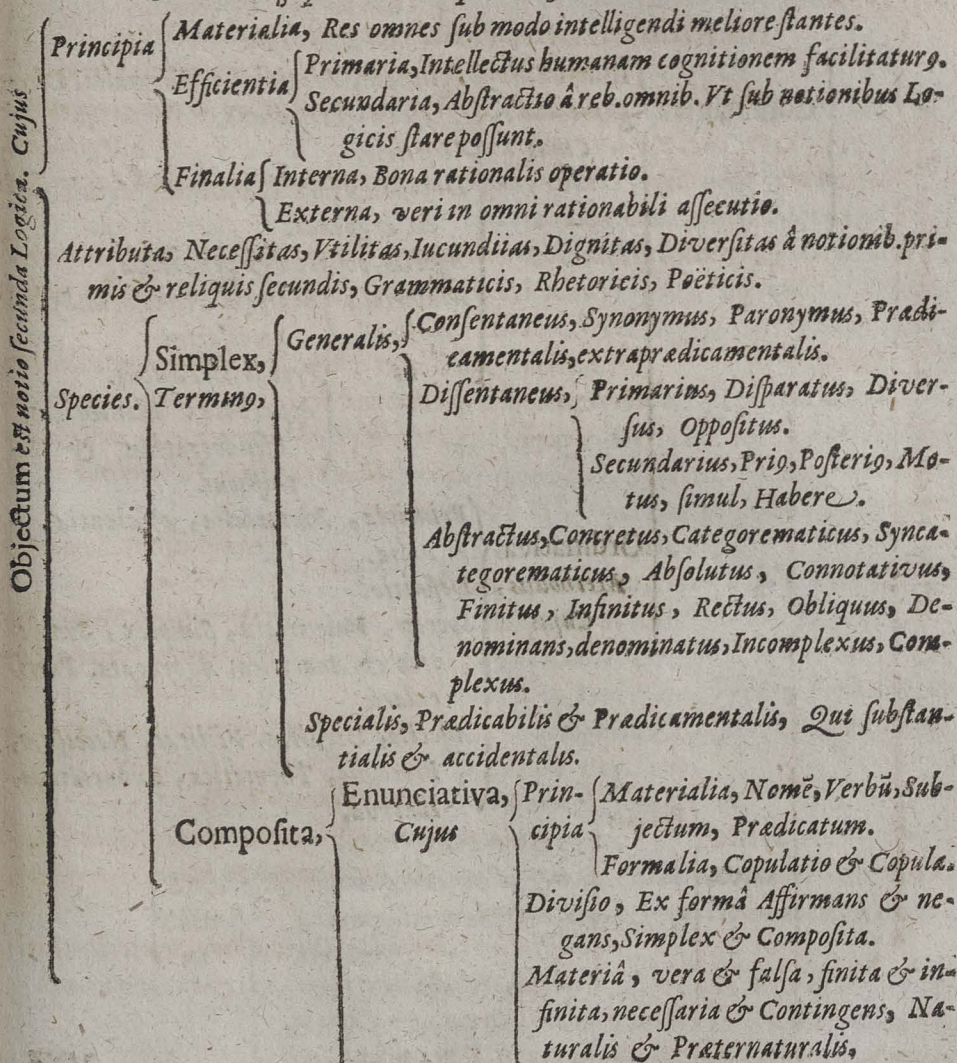 Objectum est notio secunda Logica. Cujus
Principia
Materialia, Res omnes ſub modo intelligendi meliore ſtantes.
Efficientia
Primaria, Intellectus humanam cognitionem facilitaturꝯ.
Secundaria, Abſtractio â reb. omnib. Vt ſub notionibus Lo-
gicis ſtare poſſunt.
Finalia
Interna, Bona rationalis operatio.
Externa, veri in omni rationabili aſſecutio.
Attributa, Neceſſitas, Vtilitas, Iucunditas, Dignitas, Diverſitas â notionib. pri-
mis & reliquis ſecundis, Grammaticis, Rhetoricis, Poëticis.
Species.
Simplex,
Terminꝯ,
Generalis,
Conſentaneus, Synonymus, Paronymus, Prædi-
camentalis, extraprædicamentalis.
Diſſentaneus,
Primarius, Diſparatus, Diver-
ſus, Oppoſitus.
Secundarius, Priꝯ, Poſteriꝯ, Mo-
tus, ſimul, Habere.
Abſtractus, Concretus, Categorematicus, Synca-
tegorematicus, Abſolutus, Connotativus,
Finitus, Infinitus, Rectus, Obliquus, De-
nominans, denominatus, Incomplexus, Com-
plexus.
Specialis, Prædicabilis & Prædicamentalis, Qui ſubſtan-
tialis & accidentalis.
Compoſita,
Enunciativa,
Cujus
Prin-
cipia
Materialia, Nomē, Verbū, Sub-
jectum, Prædicatum.
Formalia, Copulatio & Copula.
Diviſio, Ex formâ Affirmans & ne-
gans, Simplex & Compoſita.
Materiâ, vera & falſa, finita & in-
finita, neceſſaria & Contingens, Na-
turalis & Præternaturalis,